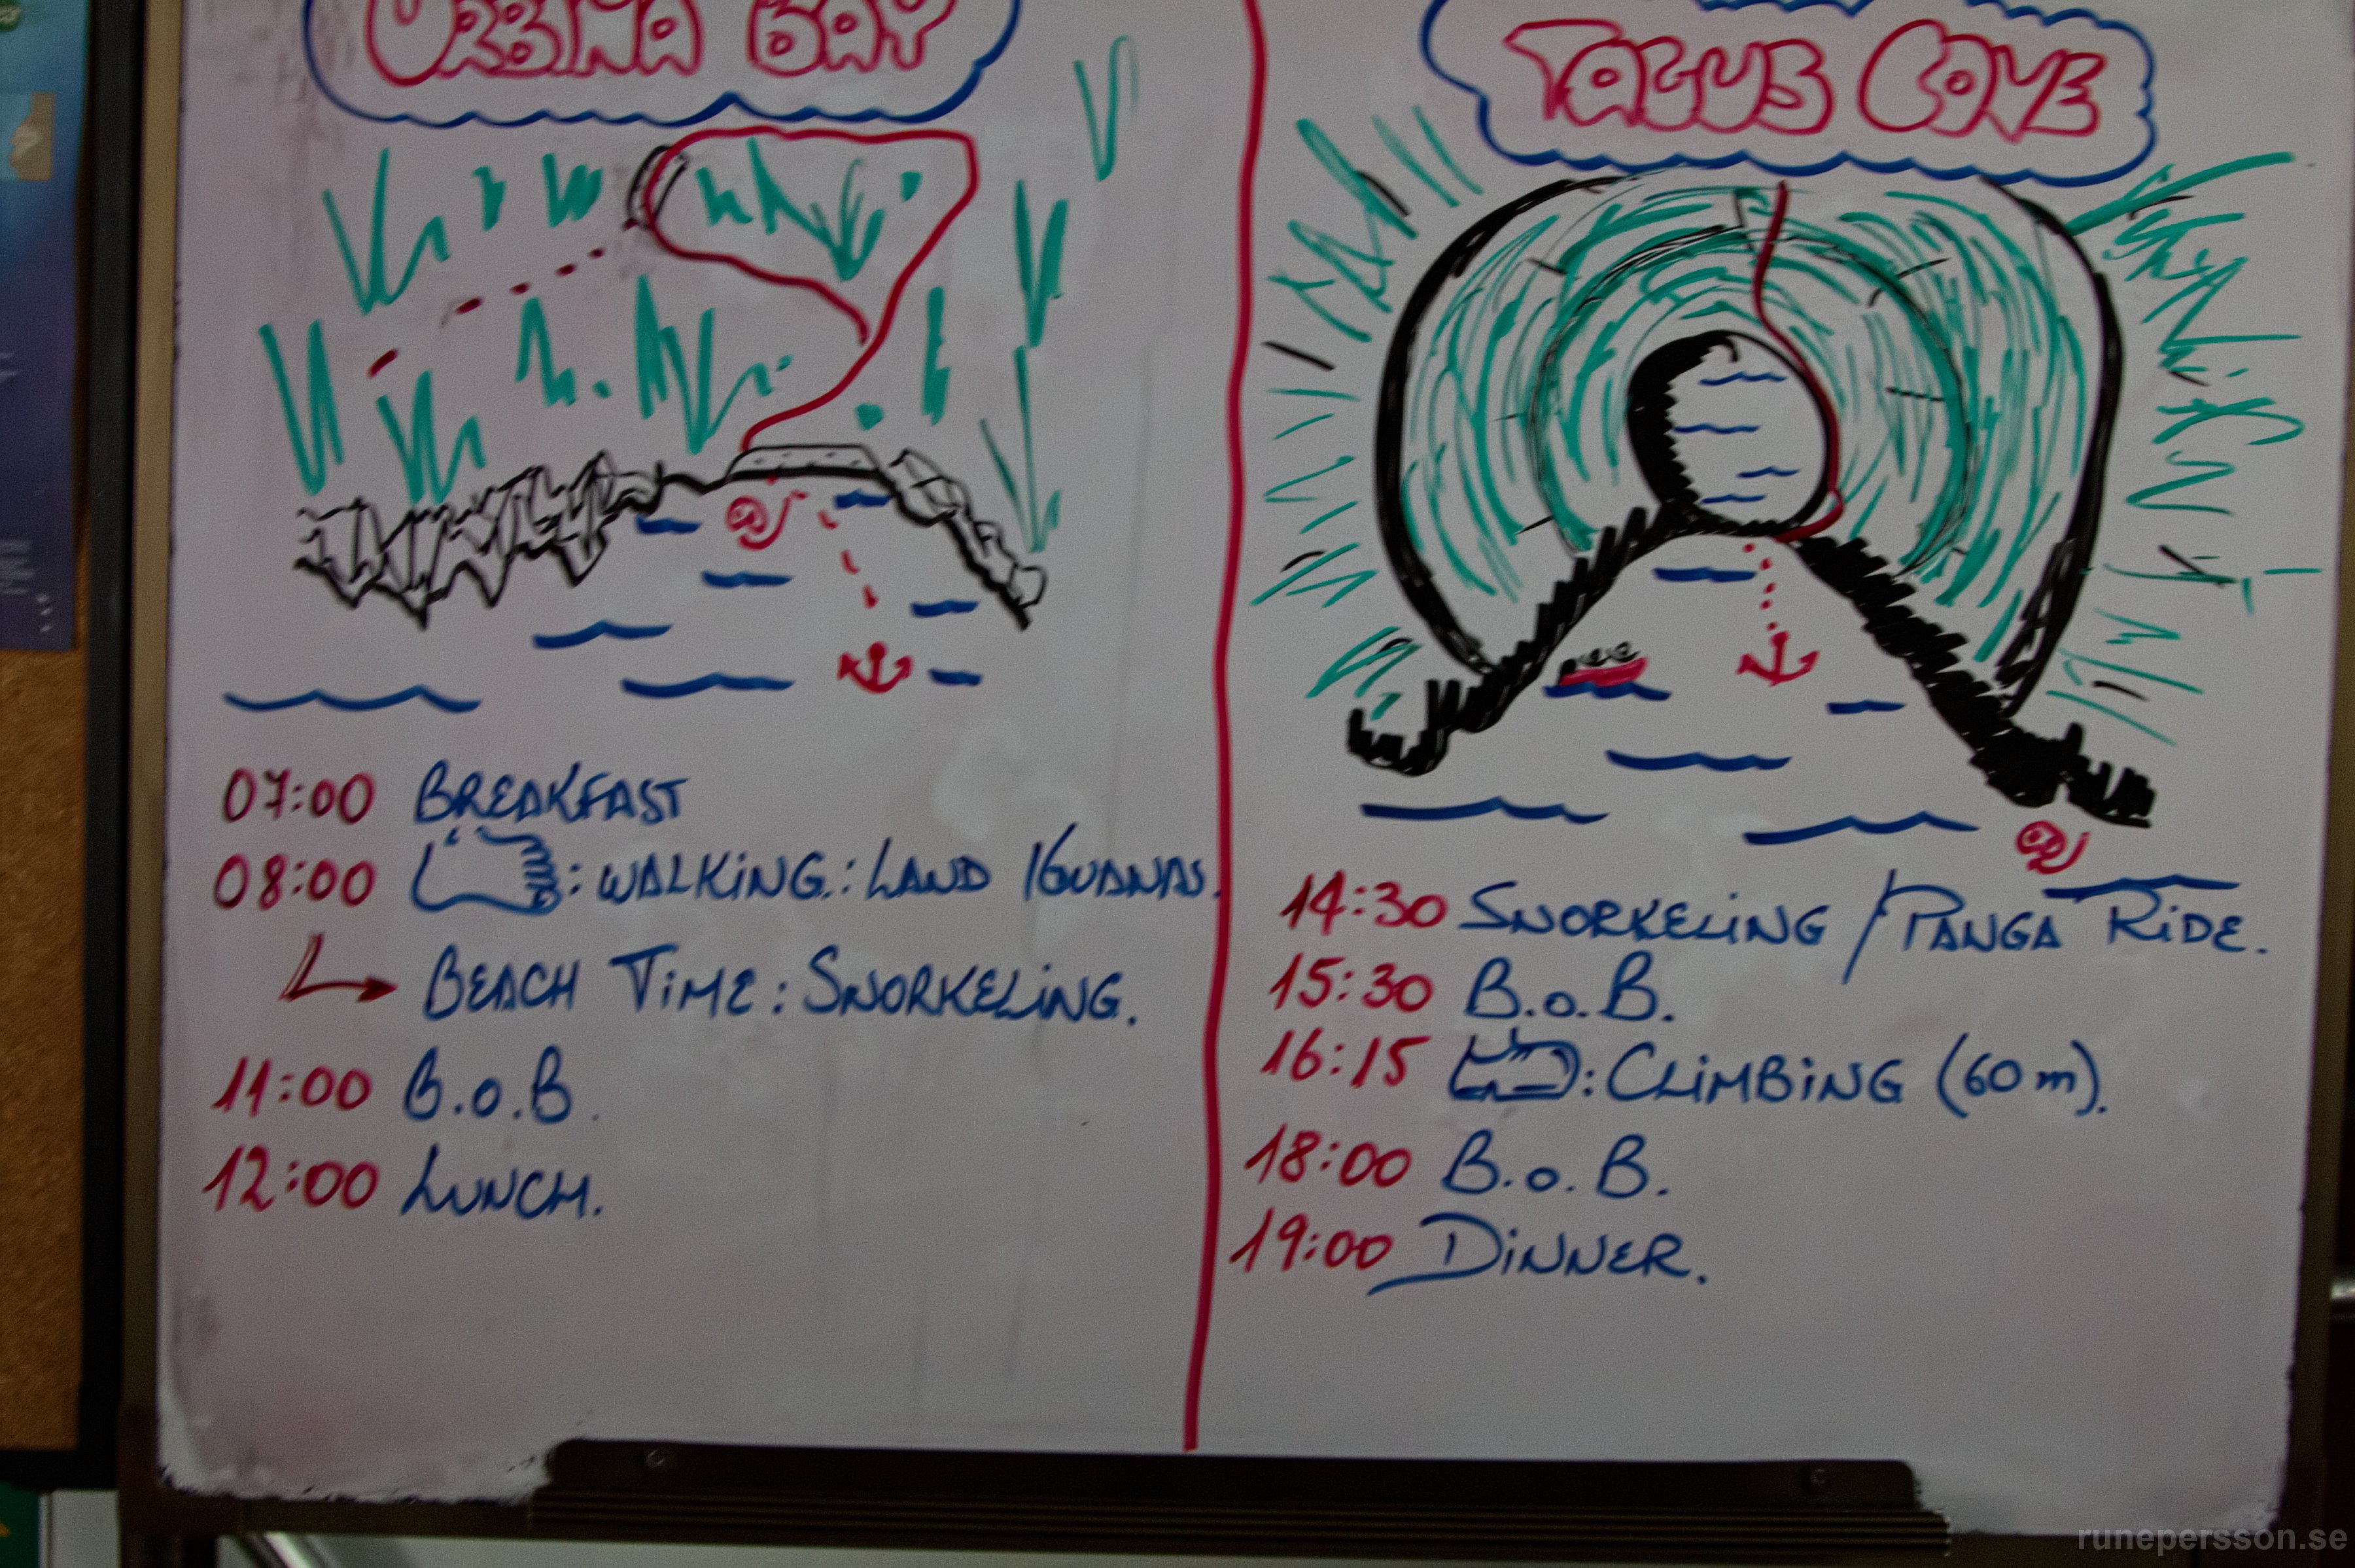 URBINA BAY
07:00 BREAKFAST
08:00 : WALKING: LAND IGUANAS.
BEACH TIME: SNORKELING.
11:00 B.O.B.
12:00 LUNCH.
TAGUS COVE
14:30 SNORKELING / PANGA RIDE.
15:30 B.O.B.
16:15 : CLIMBING (60 m).
18:00 B.O.B.
19:00 DINNER.
runepersson.se